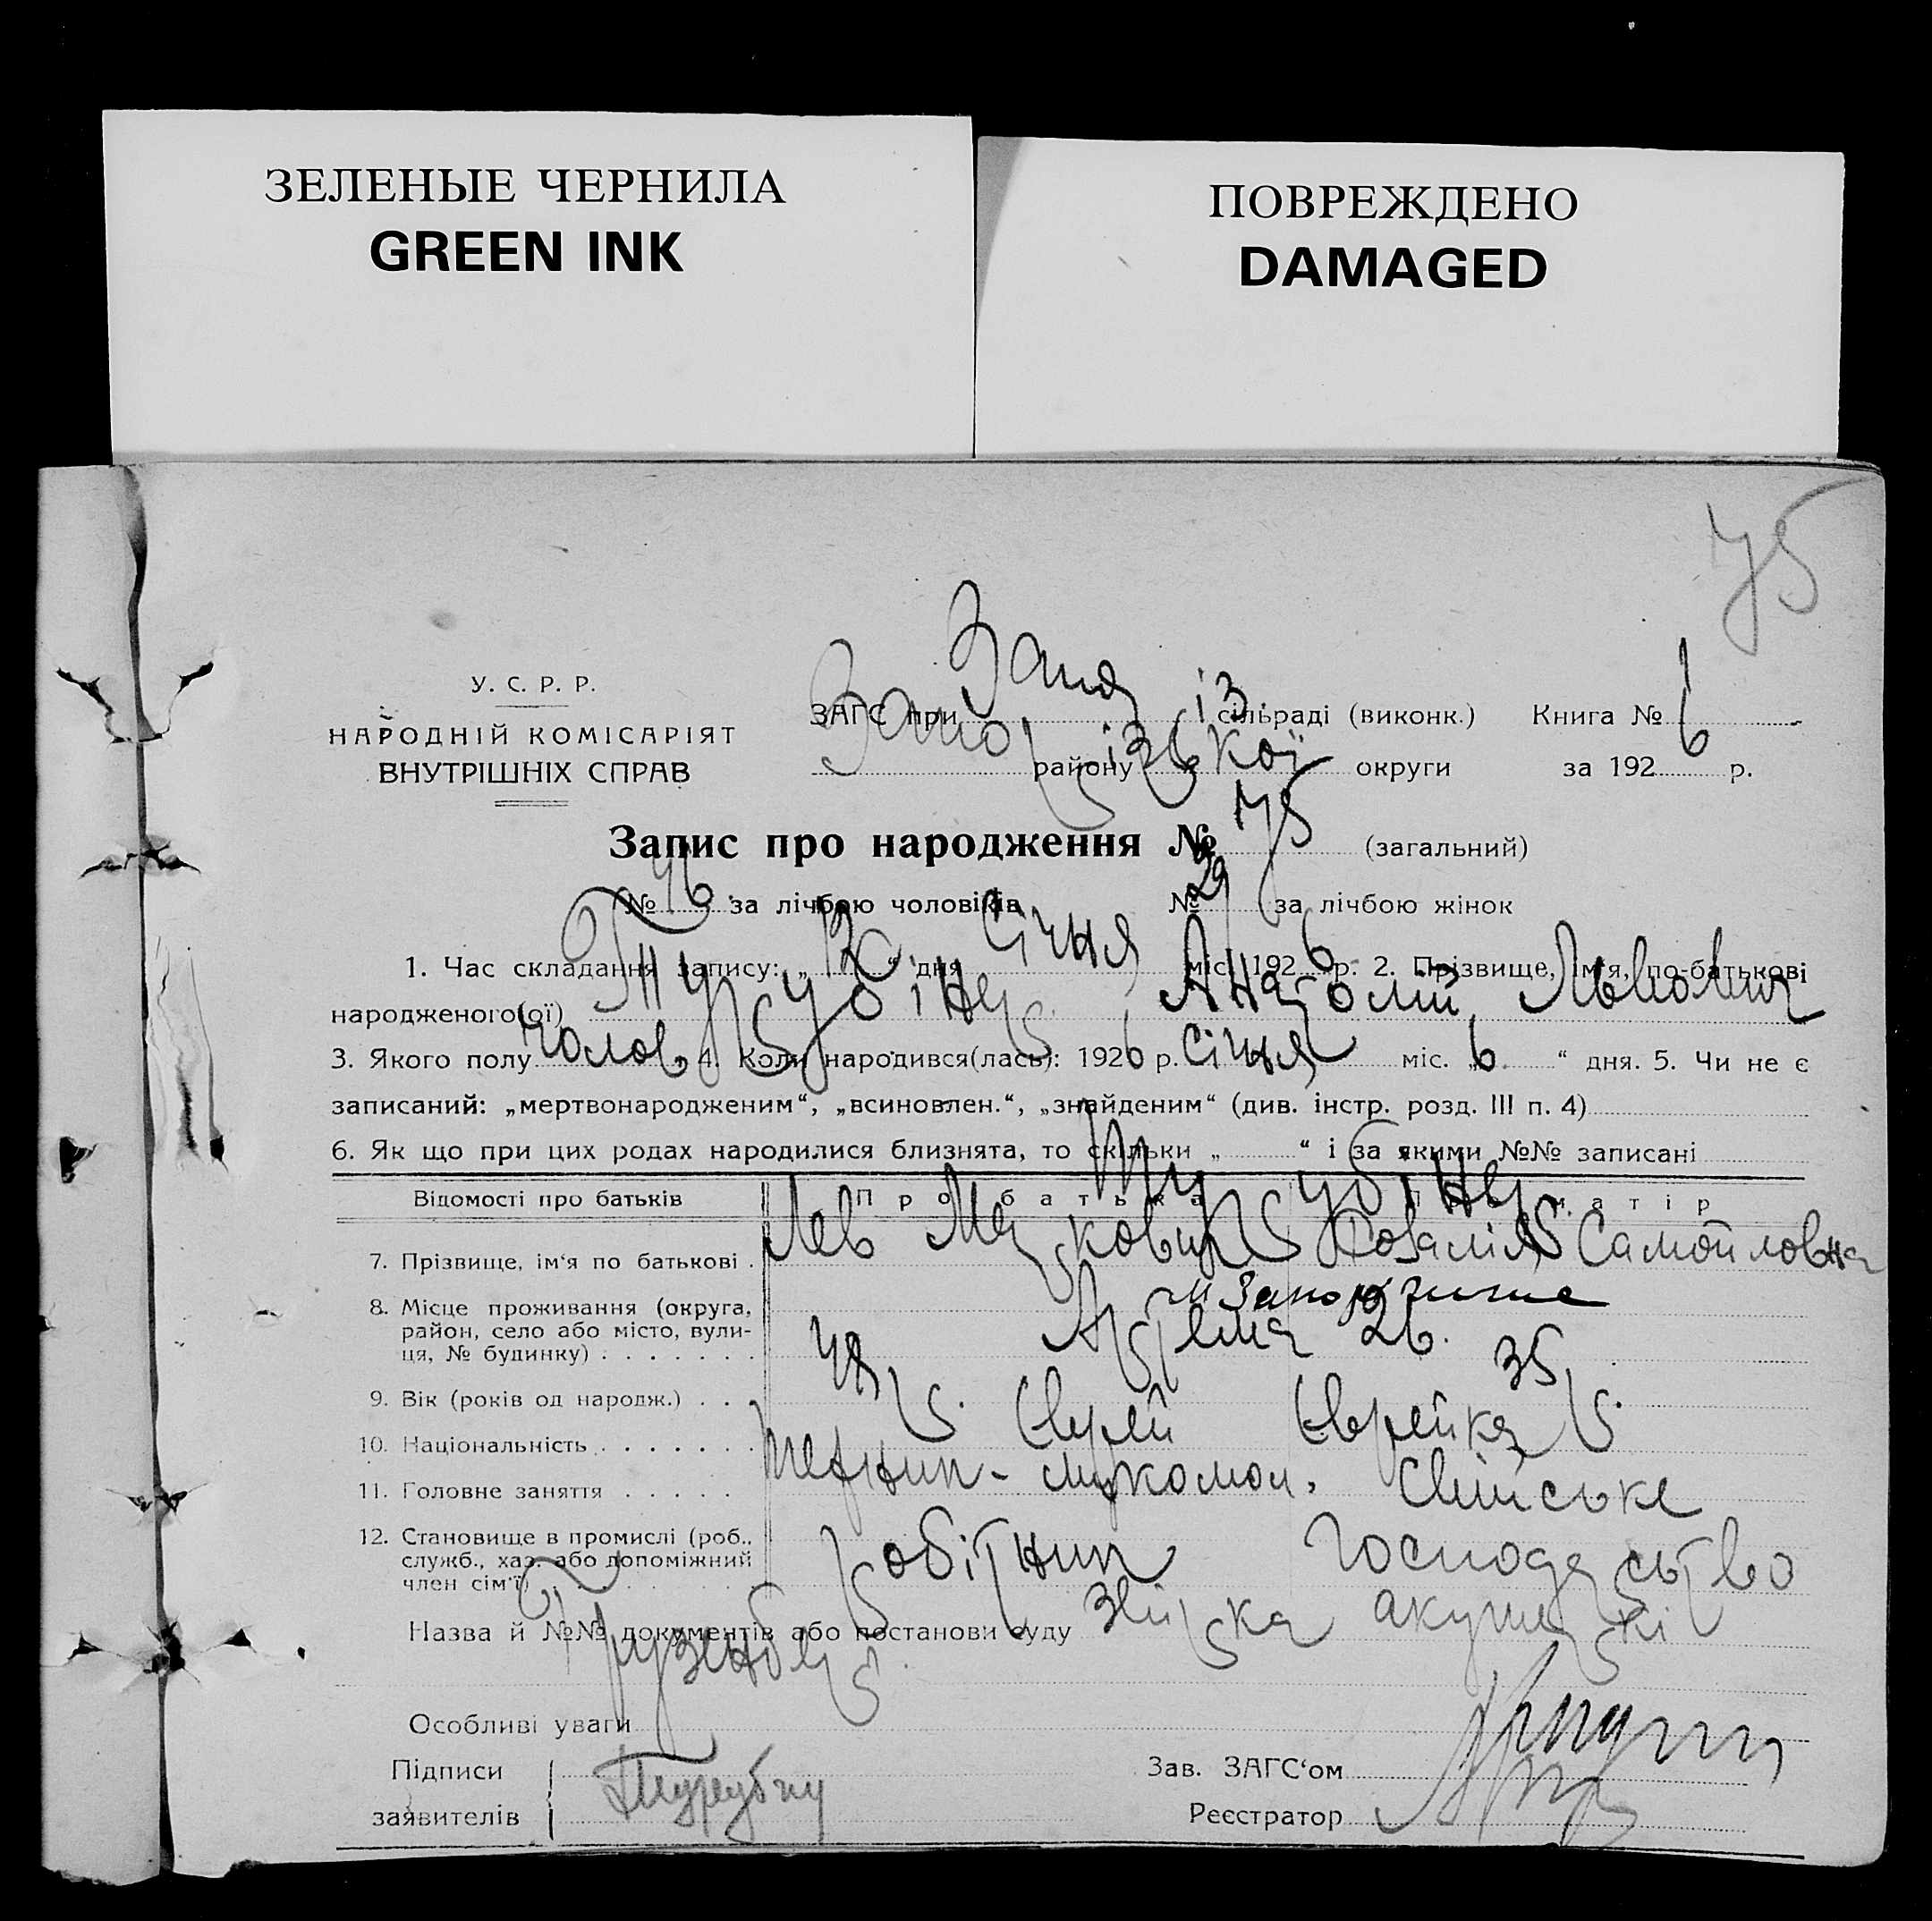 ЗЕЛЕНЫЕ ЧЕРНИЛА
GREEN INK
ПОВРЕЖДЕНО
DAMAGED
75
У. С. Р. Р.
НАРОДНІЙ КОМІСАРІЯТ
ВНУТРІШНІХ СПРАВ
ЗАГС при сільраді (виконк.) Книга №
району округи за 192 6 р.
Запис про народження № 75 (загальний)
№ 46 за лічбою чоловіків № 29 за лічбою жінок
1. Час складання запису: „ “ дня січня міс. 192 6 р. 2. Прізвище, ім'я, по-батькові
народженого(ої) Турубінер Анатолій Львович
3. Якого полу чолов. 4. Коли народився(лась): 1926 р. січня міс. „6 “ дня. 5. Чи не є
записаний: „мертвонародженим“, „всиновлен.“, „знайденим“ (див. інстр. розд. III п. 4)
6. Як що при цих родах народилися близнята, то скільки „ “ і за якими №№ записані
Відомості про батьків Про батька Про матір
Турубінер
7. Прізвище, ім‘я по батькові . Лев Маркович Розалія Самойловна
8. Місце проживання (округа, м Запоріжжє
район, село або місто, вули- Артема 26.
ця, № будинку) . . . . . . .
9. Вік (років од народж.) . . . р. 35 р.
10. Національність . . . . . . . Єврей Єврейка
11. Головне заняття . . . . . технік-мукомол. Свійське
12. Становище в промислі (роб., робітник господарство
служб., хаз. або допоміжний
член сім'ї)
Назва й №№ документів або постанови суду звістка акушерки
Особливі уваги
Підписи
заявителів
Зав. ЗАГС‘ом
Реєстратор